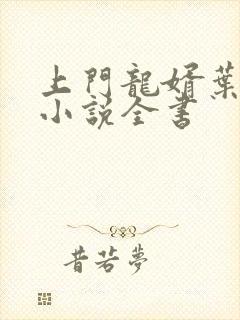 上門龍婿葉
小說全書
昔若夢